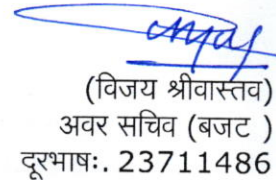 (विजय श्रीवास्तव)
अवर सचिव (बजट )
दूरभाषः. 23711486